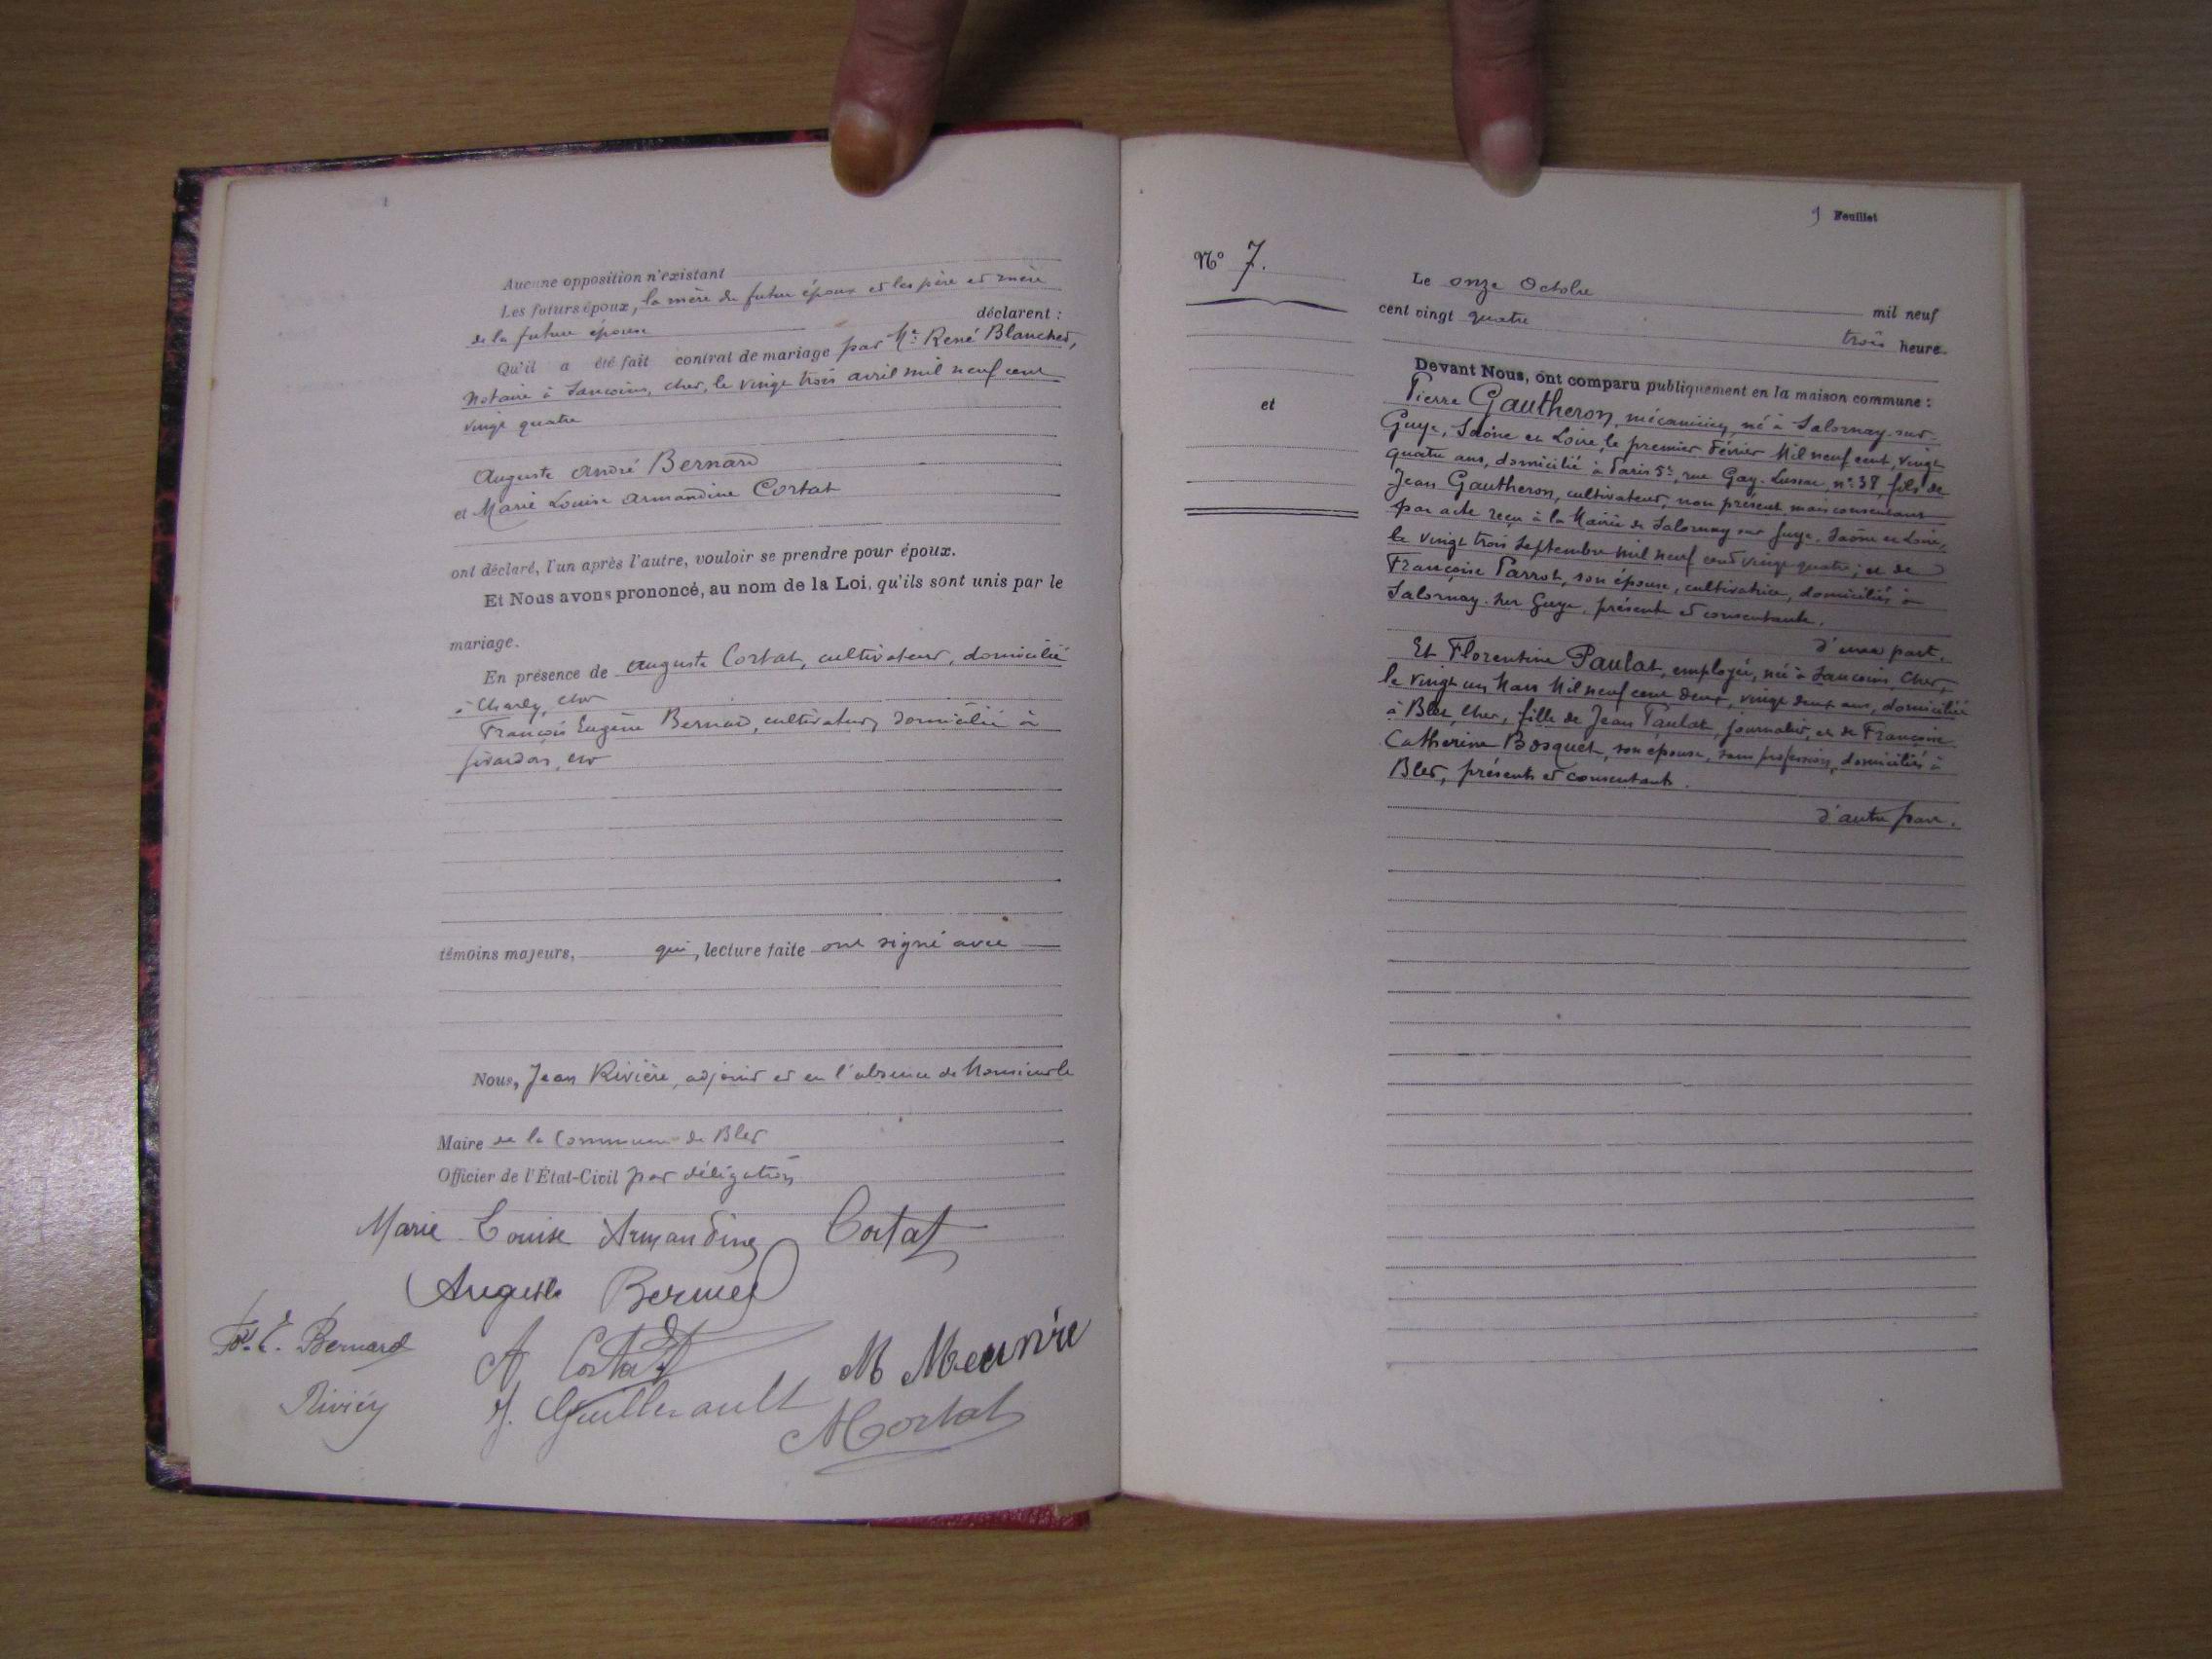 Aucune opposition n'existant
Les futurs époux, la mère du futur époux et les père et mère
de la future épouse déclarent :
Qu'il a été fait contrat de mariage par Me René Blanchet,
Notaire à Sancoins, Cher, le vingt trois avril mil neuf cent
vingt quatre
Auguste André Bernard
et Marie Louise Armandine Cortat
ont déclaré, l'un après l'autre, vouloir se prendre pour époux.
Et Nous avons prononcé, au nom de la Loi, qu'ils sont unis par le
mariage.
En présence de Auguste Cortat, cultivateur, domicilié
à Charly, Cher
François Eugène Bernard, cultivateur, domicilié à
Givardon, Cher
témoins majeurs, qui, lecture faite ont signé avec
Nous, Jean Rivière, adjoint et en l'absence de Monsieur le
Maire de la Commune de Blet
Officier de l'État-Civil par délégation
Marie Louise Armandine Cortat
Auguste Bernard
E. Bernard
A Cortat
M Meunie
J. Guillerault
Cortat
1 Feuillet
No 7.
et
Le onze Octobre mil neuf
cent vingt quatre trois heure
Devant Nous, ont comparu publiquement en la maison commune :
Pierre Gautheron, mécanicien, né à Salornay-sur-
Guye, Saône et Loire, le premier Février Mil neuf cent, vingt
quatre ans, domicilié à Paris 5e, rue Gay-Lussac, n° 37, fils de
Jean Gautheron, cultivateur, non présent mais consentant
par acte reçu à la Mairie de Salornay sur Guye, Saône et Loire,
le vingt trois Septembre mil neuf cent vingt quatre ; et de
Françoise Parrot, son épouse, cultivatrice, domiciliés à
Salornay-sur Guye, présente et consentante.
d'une part.
Et Florentine Paulat, employée, née à Sancoins, Cher,
le vingt un Mars Mil neuf cent deux, vingt deux ans, domiciliée
à Blet, Cher, fille de Jean Paulat, journalier, et de Françoise
Catherine Bosquet, son épouse, sans profession, domiciliés à
Blet, présents et consentants.
d'autre part.